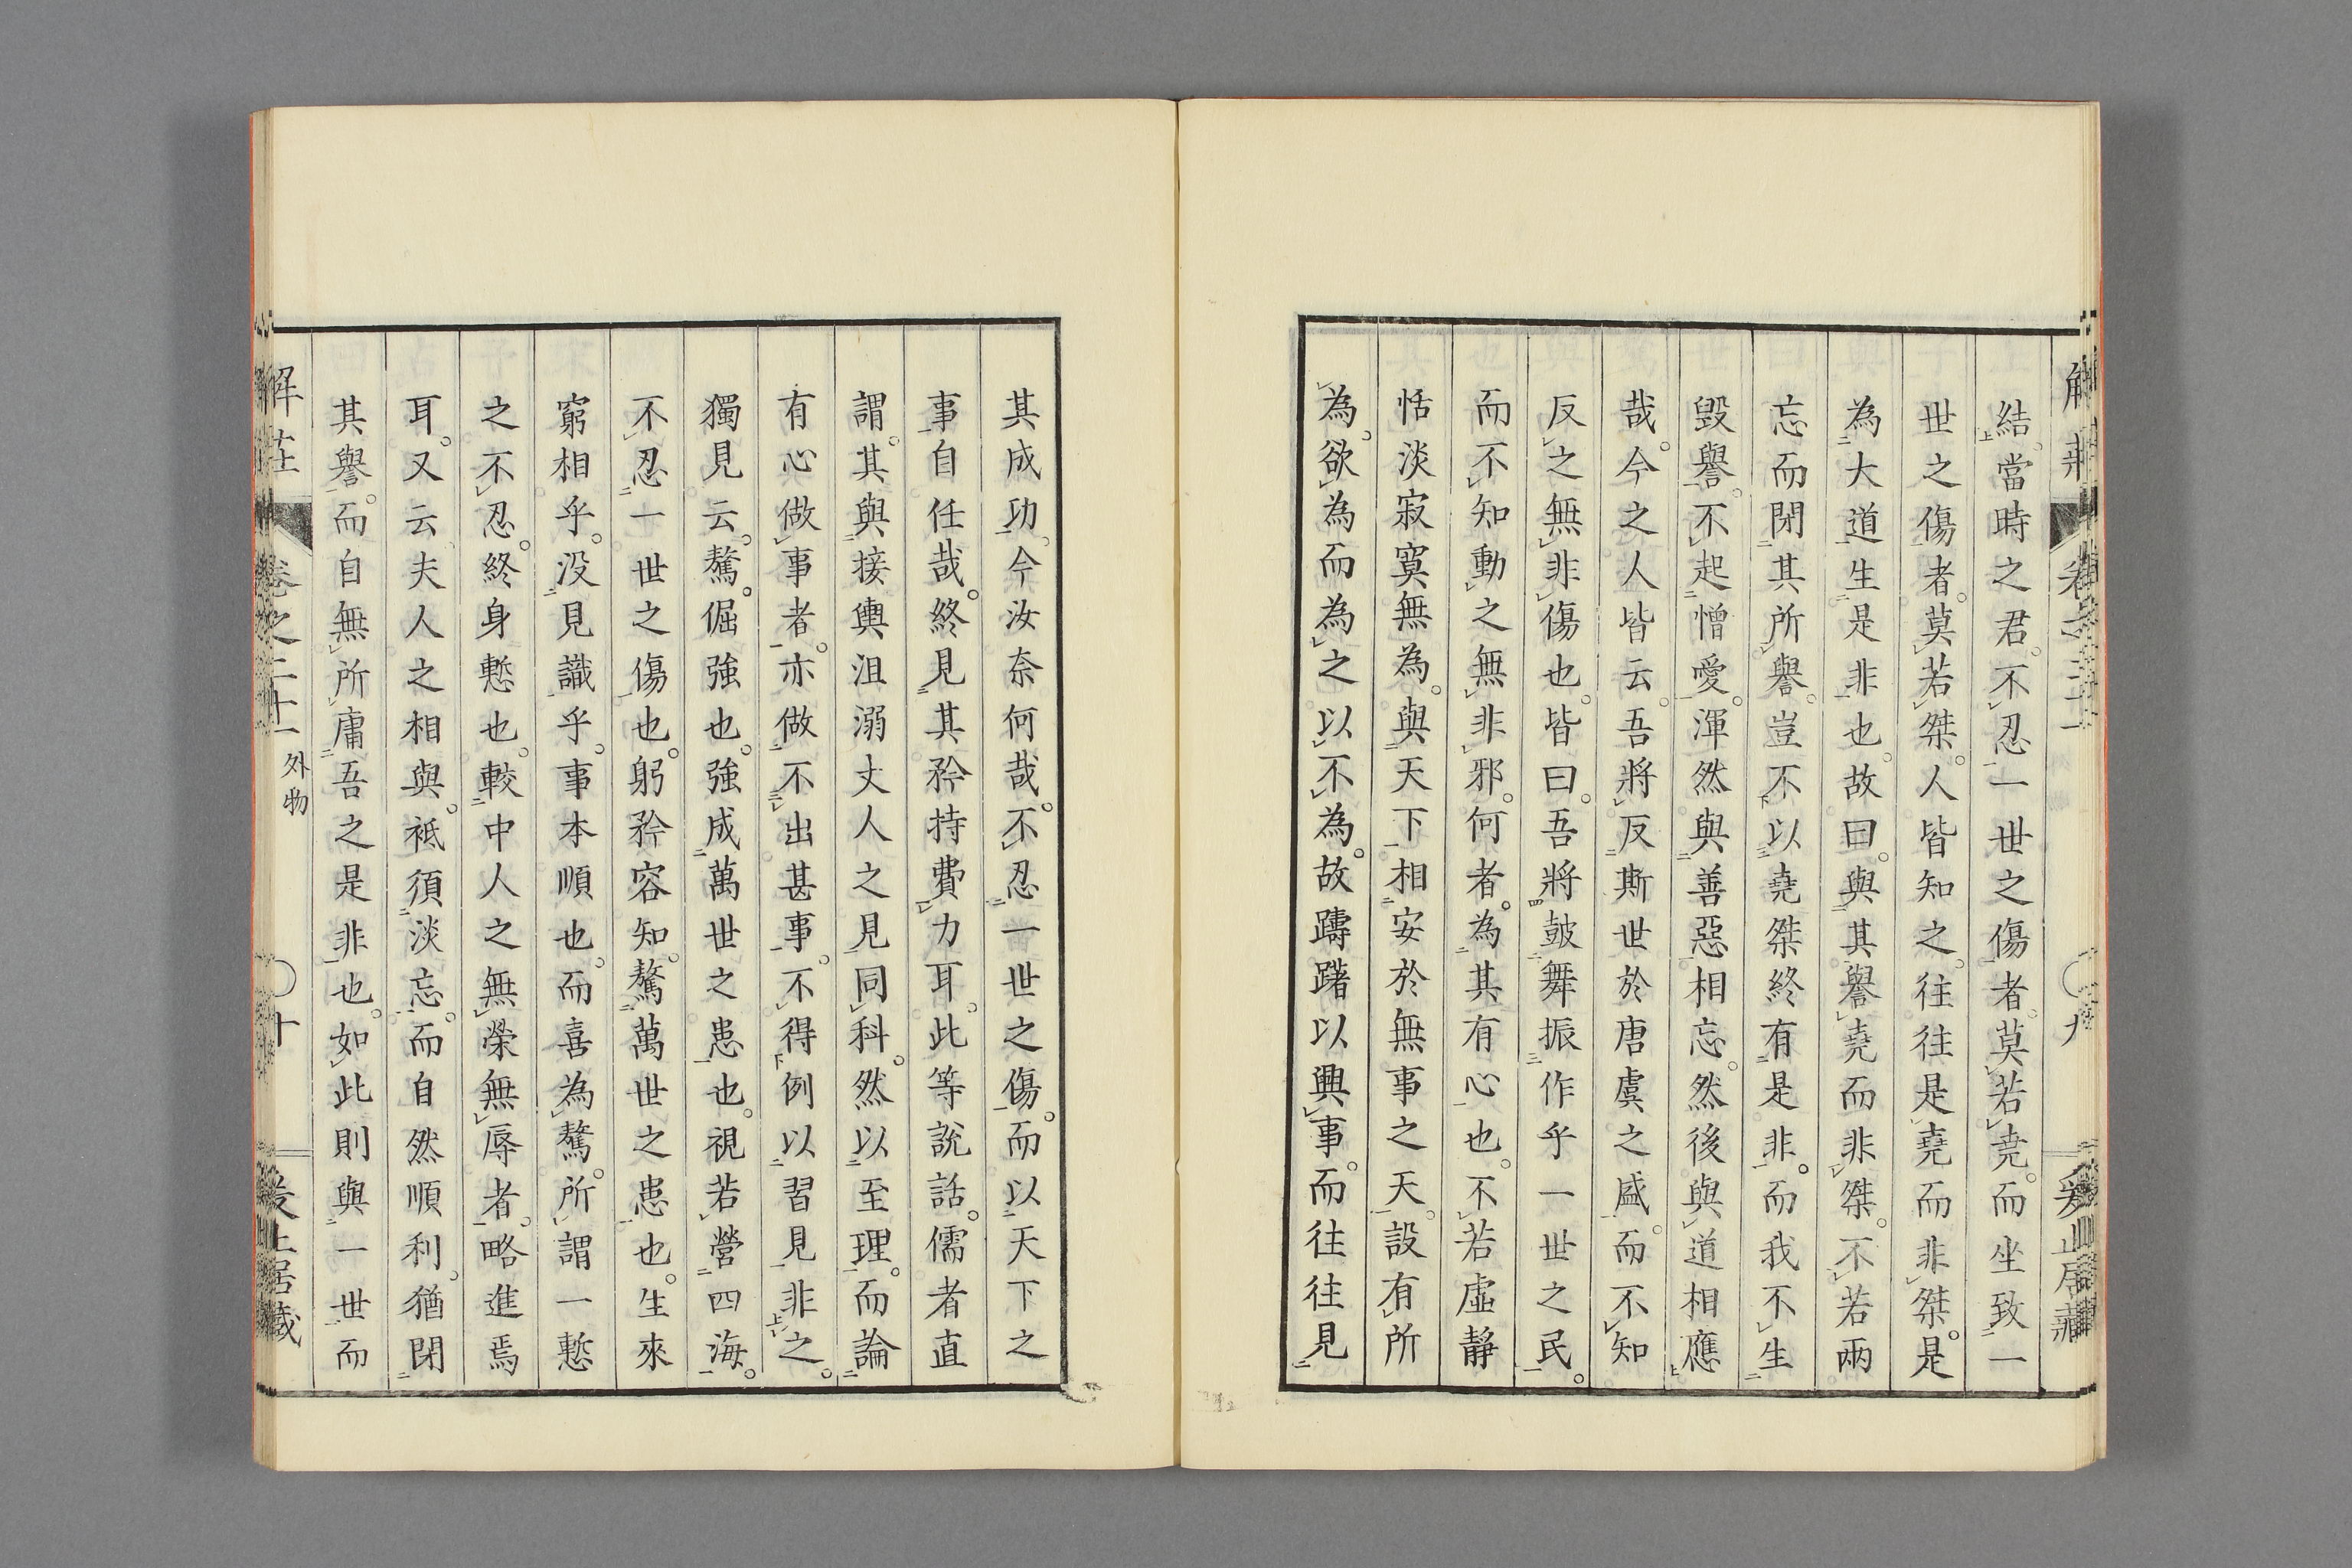 結當時之君。不忍一世之傷者。莫若尭。而坐致一
世之傷者。莫若桀。人皆知之。往往是堯而非桀。是
為大道生是非也。故曰。與其譽堯而非桀。不若兩
忘而閉其所譽。豈不以堯桀終有是非。而我不生
毀譽。不起憎愛。渾然與善惡相忘。然後與道相應
哉。今之人皆云。吾將反斯世於唐虞之盛。而不知
反之無非傷也。皆曰。吾將鼓舞振作乎一世之民。
而不知動之無非邪。何者。為其有心也。不若虛靜
恬淡寂寞無為。與天下相安於無事之天。設有所
為。欲為而為之以不為。故躊躇以興事。而往往見
其成功。今汝奈何哉。不忍一世之傷。而以天下之
事自任哉。終見其矜持費力耳。此等說話。儒者直
謂。其與接輿沮溺丈人之見同科。然以至理。而論
有心做事者。亦做不出甚事。不得例以習見非之。
獨見云。驁。倔強也。強成萬世之患也。視若營四海。
不忍一世之傷也。躬矜容知。驁萬世之患也。生來
窮相乎。没見識乎。事本順也。而喜為驁。所謂一慙
之不忍。終身慙也。較中人之無榮無辱者。略進焉
耳。又云。夫人之相與。祗須淡忘。而自然順利。猶閉
其譽。而自無所庸吾之是非也。如此則與一世而
解莊
卷之二十一
外物
十